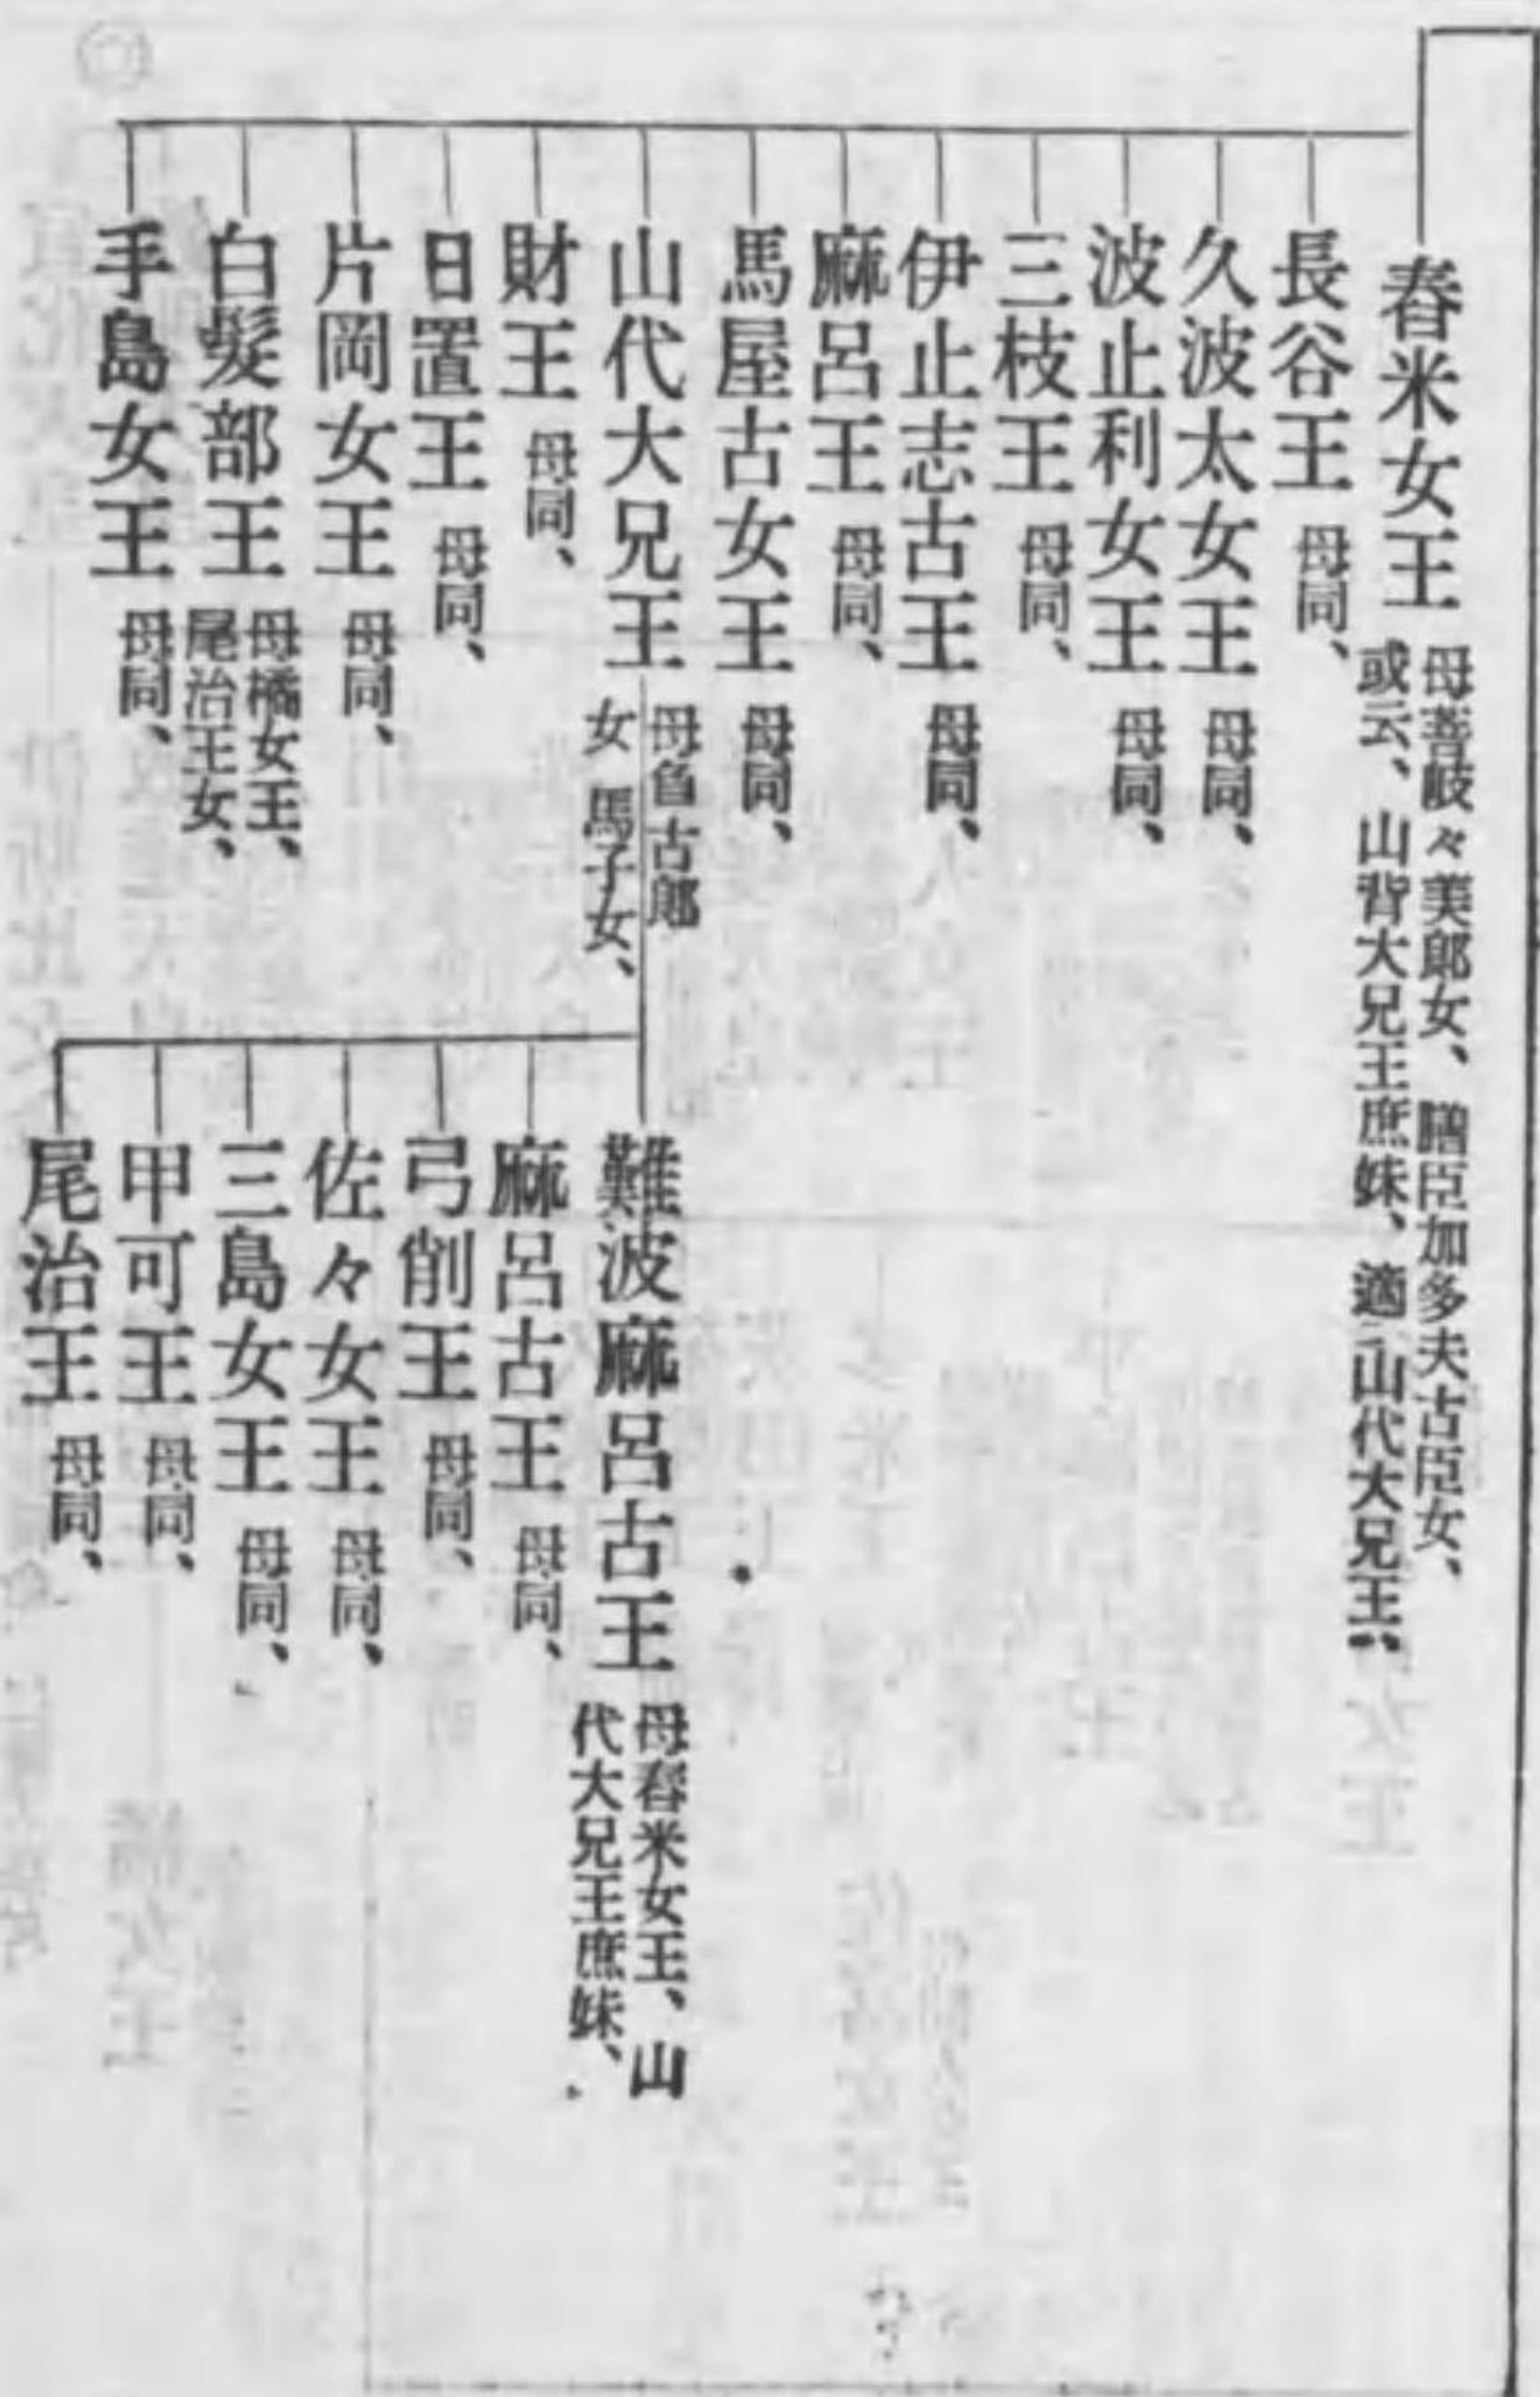 舂米女王
母菩岐々美郎女、膳臣加多夫古臣女、
或云、山背大兄王庶妹、適二山代大兄王一、
長谷王 母同、
久波太女王 母同、
波止利女王 母同、
三枝王 母同、
伊止志古王 母同、
麻呂王 母同、
馬屋古女王 母同、
山代大兄王
母負古郎
女 馬子女、
財王 母同、
日置王 母同、
片岡女王 母同、
白髮部王
母橘女王、
尾治王女、
手島女王 母同、
難波麻呂古王
母舂米女王、山
代大兄王庶妹、
麻呂古王 母同、
弓削王 母同、
佐々女王 母同、
三島女王 母同、
甲可王 母同、
尾治王 母同、